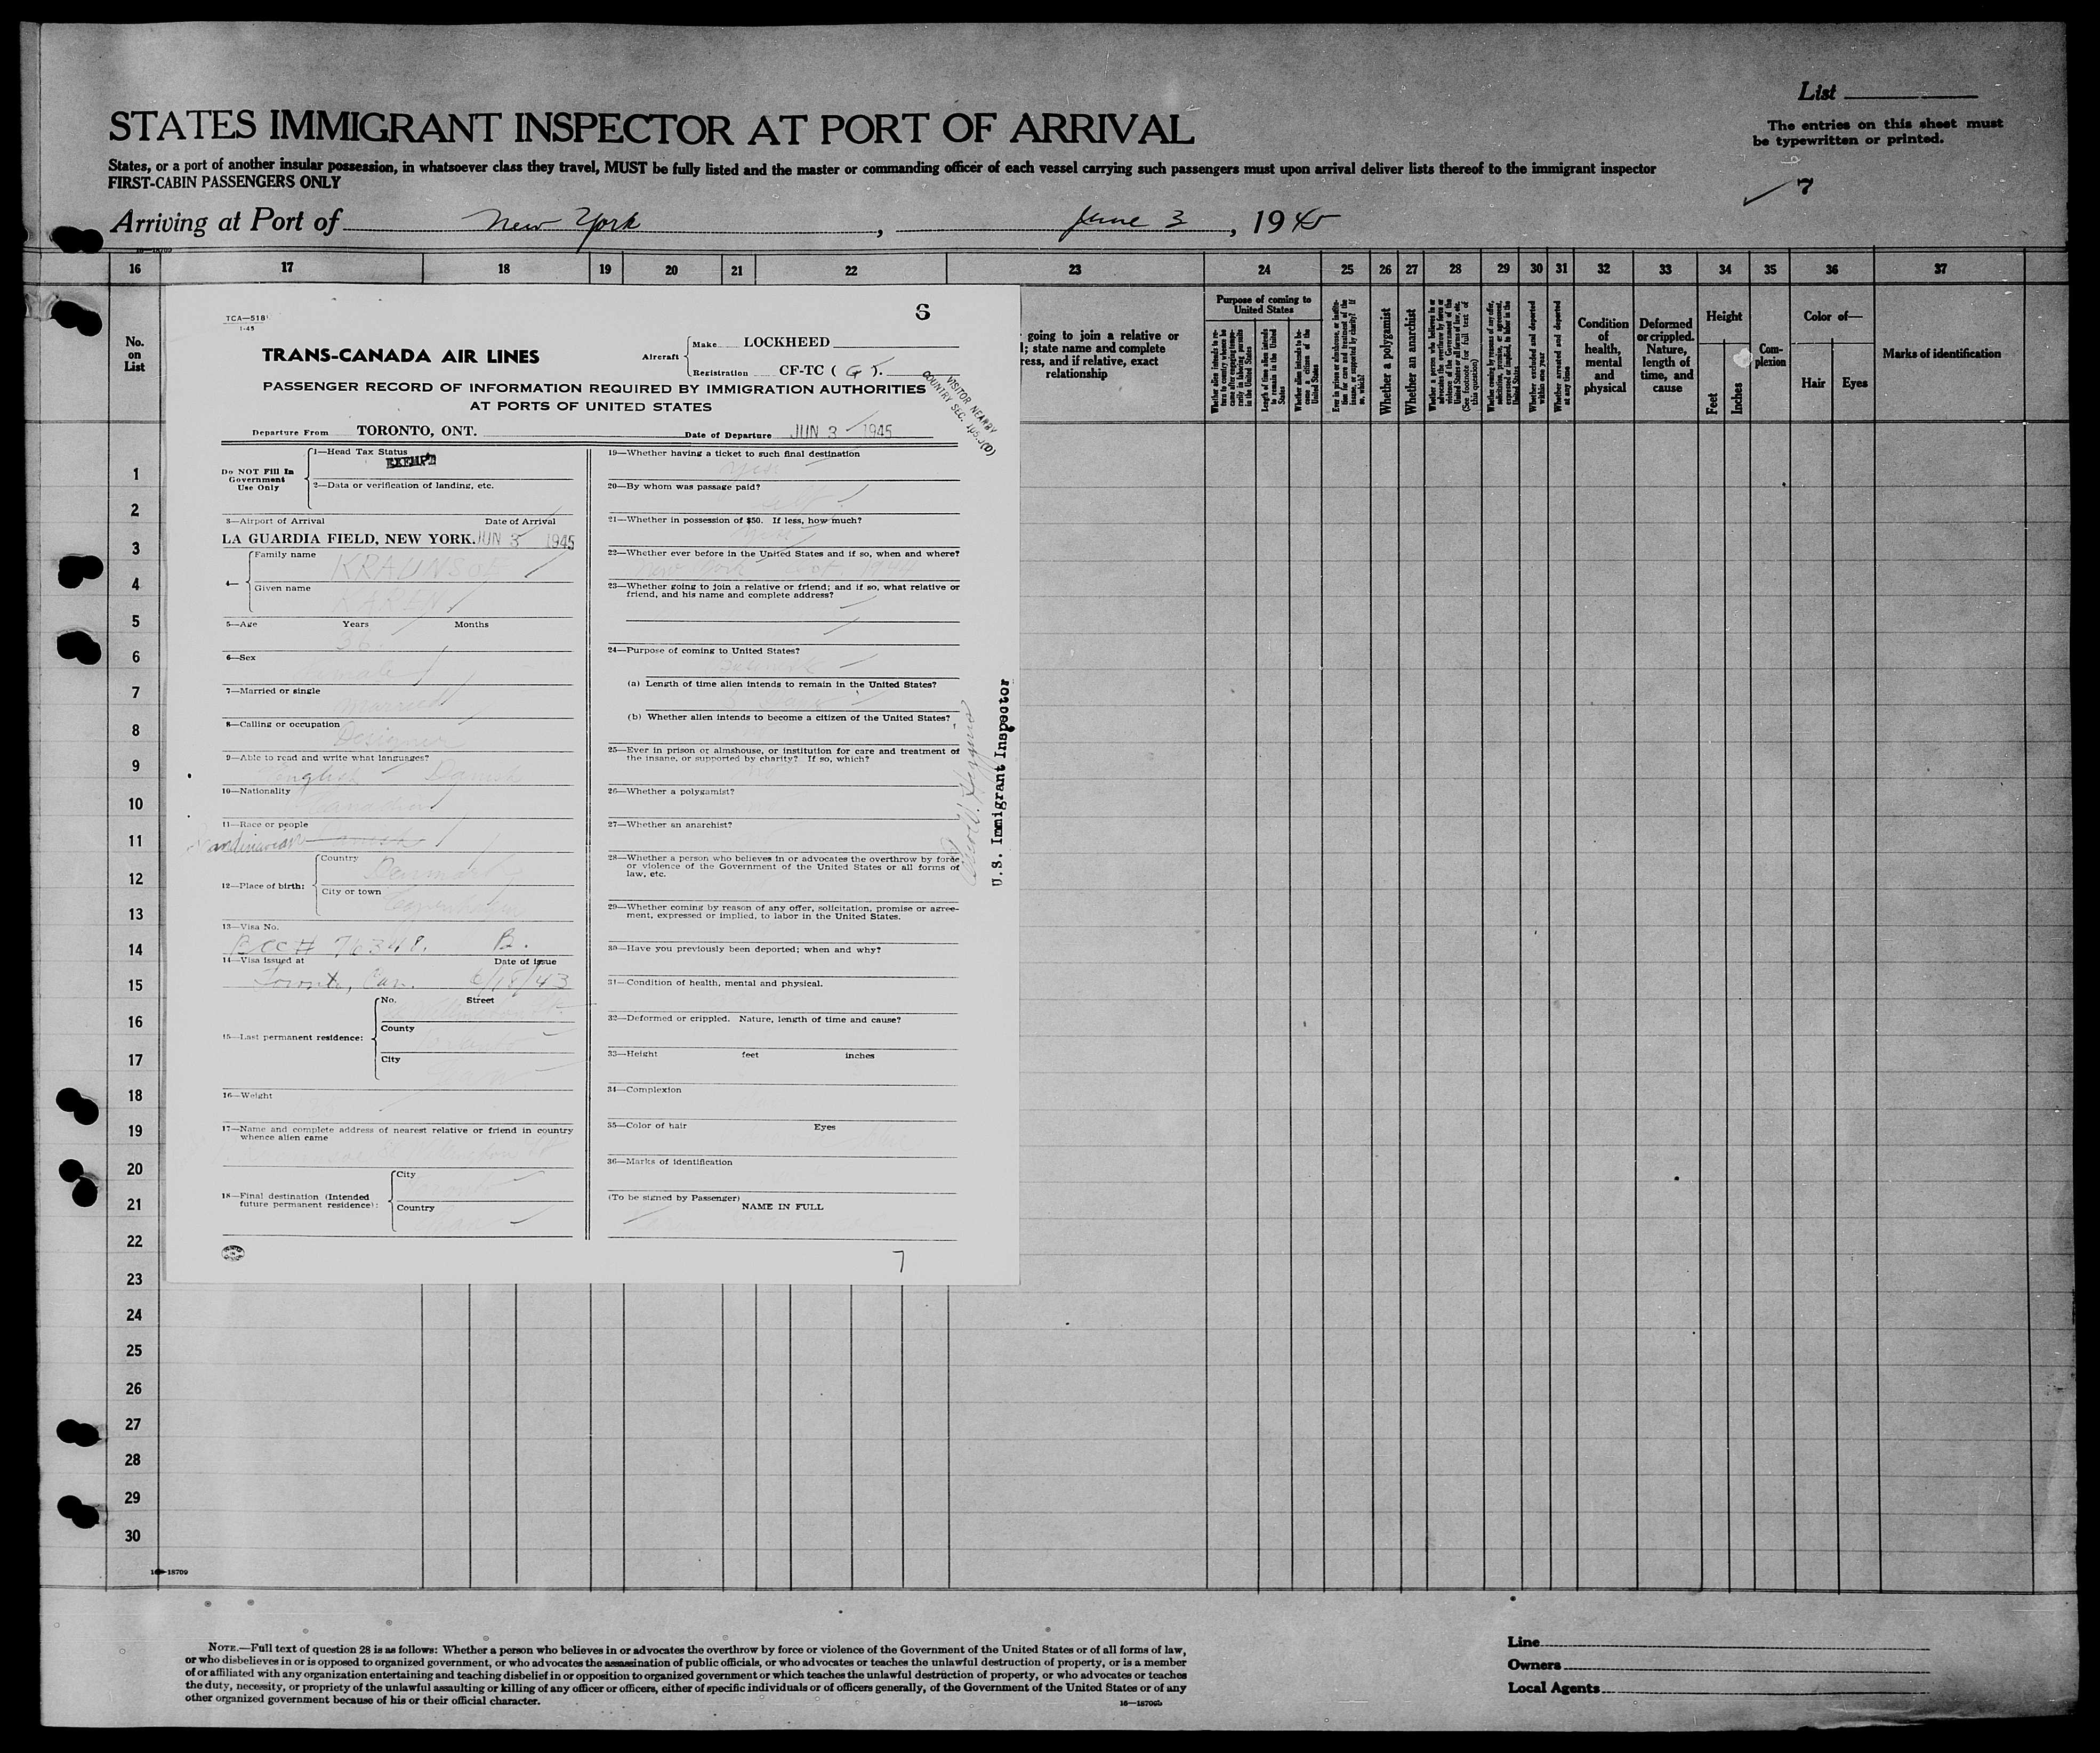 List
STATES IMMIGRANT INSPECTOR AT PORT OF ARRIVAL
The entries on this sheet must
be typewritten or printed.
States, or a port of another insular possession, in whatsoever class they travel, MUST be fully listed and the master or commanding officer of each vessel carrying such passengers must upon arrival deliver lists thereof to the immigrant inspector
FIRST-CABIN PASSENGERS ONLY
7
Arriving at Port of New York, June 3, 1945
16 17 18 19 20 21 22 23 24 25 26 27 28 29 30 31 32 33 34 35 36 37
No.
on
List
going to join a relative or
; state name and complete
ress, and if relative, exact
relationship
Purpose of coming to
United States
Whether alien intends to return to country whence he came after engaging temporarily in laboring pursuits in the United States
Length of time alien intends to remain in the United States
Whether alien intends to become a citizen of the United States
Ever in prison or almshouse, or institution for care and treatment of the insane, or supported by charity? If so, which?
Whether a polygamist
Whether an anarchist
Whether a person who believes in or advocates the overthrow by force or violence of the Government of the United States or all forms of law, etc. (See footnote for full text of this question)
Whether coming by reason of any offer, solicitation, promise, or agreement, expressed or implied, to labor in the United States
Whether excluded and deported within one year
Whether arrested and deported at any time
Condition
of
health,
mental
and
physical
Deformed
or crippled.
Nature,
length of
time, and
cause
Height
Feet
Inches
Com-
plexion
Color of—
Hair
Eyes
Marks of identification
TCA—518
1-45
6
TRANS-CANADA AIR LINES
Aircraft
Make LOCKHEED
Registration CF-TC ( G ).
PASSENGER RECORD OF INFORMATION REQUIRED BY IMMIGRATION AUTHORITIES
AT PORTS OF UNITED STATES
VISITOR NEARBY
COUNTRY SEC.
Departure From TORONTO, ONT.
Date of Departure JUN 3 1945
Do NOT Fill In
Government
Use Only
1—Head Tax Status
EXEMPT
2—Data or verification of landing, etc.
3—Airport of Arrival Date of Arrival
LA GUARDIA FIELD, NEW YORK. JUN 3 1945
4—
Family name
Given name KAREN
5—Age Years Months
36
6—Sex
Female
7—Married or single
Married
8—Calling or occupation
Designer
9—Able to read and write what languages?
English Danish
10—Nationality
Canadian
11—Race or people
Scandinavian Danish
12—Place of birth:
Country Denmark
City or town Copenhagen
13—Visa No.
BCC# 76348. B.
14—Visa issued at Date of issue
Toronto, Can. 6/18/43
15—Last permanent residence:
No. Street
County
City
16—Weight
17—Name and complete address of nearest relative or friend in country
whence alien came
18—Final destination (Intended
future permanent residence):
City
Country
19—Whether having a ticket to such final destination
Yes
20—By whom was passage paid?
self
21—Whether in possession of $50. If less, how much?
22—Whether ever before in the United States and if so, when and where?
New York Oct. 1944
23—Whether going to join a relative or friend; and if so, what relative or
friend, and his name and complete address?
24—Purpose of coming to United States?
Business
(a) Length of time alien intends to remain in the United States?
(b) Whether alien intends to become a citizen of the United States?
25—Ever in prison or almshouse, or institution for care and treatment of
the insane, or supported by charity? If so, which?
26—Whether a polygamist?
27—Whether an anarchist?
28—Whether a person who believes in or advocates the overthrow by force
or violence of the Government of the United States or all forms of
law, etc.
29—Whether coming by reason of any offer, solicitation, promise or agree-
ment, expressed or implied, to labor in the United States.
30—Have you previously been deported; when and why?
31—Condition of health, mental and physical.
32—Deformed or crippled. Nature, length of time and cause?
33—Height feet inches
34—Complexion
35—Color of hair Eyes
36—Marks of identification
(To be signed by Passenger)
NAME IN FULL
7
U.S. Immigrant Inspector
1
2
3
4
5
6
7
8
9
10
11
12
13
14
15
16
17
18
19
20
21
22
23
24
25
26
27
28
29
30
16—18709
NOTE.—Full text of question 28 is as follows: Whether a person who believes in or advocates the overthrow by force or violence of the Government of the United States or of all forms of law,
or who disbelieves in or is opposed to organized government, or who advocates the assassination of public officials, or who advocates or teaches the unlawful destruction of property, or is a member
of or affiliated with any organization entertaining and teaching disbelief in or opposition to organized government or which teaches the unlawful destruction of property, or who advocates or teaches
the duty, necessity, or propriety of the unlawful assaulting or killing of any officer or officers, either of specific individuals or of officers generally, of the Government of the United States or of any
other organized government because of his or their official character.
16—18709b
Line
Owners
Local Agents